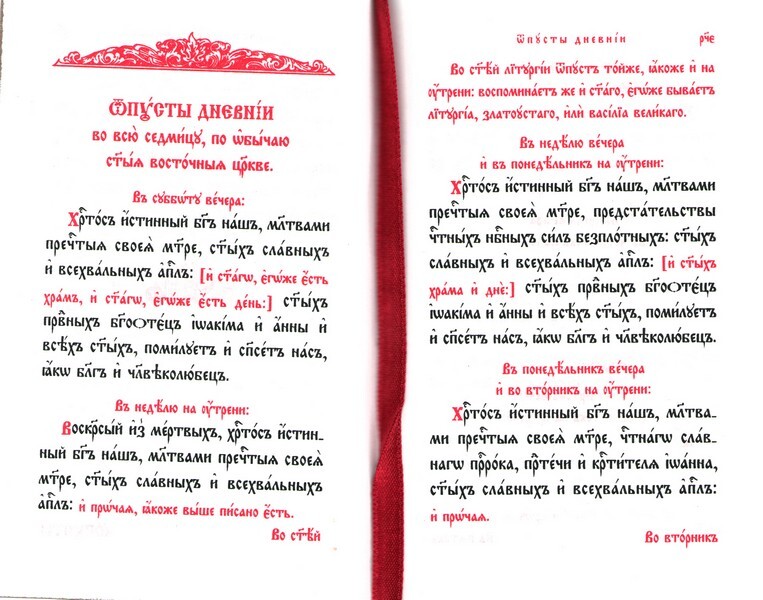 Ѿпꙋ́сты дневні́и
во всю̀ седми́цꙋ, по ѡ҆бы́чаю
ст҃ы́ѧ восто́чныѧ цр҃кве.
Въ сꙋббѡ́тꙋ ве́чера:
Хрⷭ҇то́съ и҆́стинный бг҃ъ на́шъ, мл҃твами
пречⷭ҇тыѧ своеѧ̀ мт҃ре, ст҃ы́хъ сла́вныхъ
и҆ всехва́льныхъ а҆пⷭ҇лъ: [и҆ ст҃а́гѡ, є҆гѡ́же є҆́сть
хра́мъ, и҆ ст҃а́гѡ, є҆гѡ́же є҆́сть де́нь:] ст҃ы́хъ
првⷣныхъ бг҃оѻте́цъ і҆ѡакі́ма и҆ а҆́нны и҆
всѣ́хъ ст҃ы́хъ, поми́лꙋетъ и҆ сп҃се́тъ на́съ,
ꙗ҆́кѡ бл҃гъ и҆ чл҃вѣколю́бецъ.
Въ недѣ́лю на ᲂу҆́трени:
Воскрⷭ҇сы́й и҆з̾ ме́ртвыхъ, хрⷭ҇то́съ и҆́стин-
ный бг҃ъ на́шъ, мл҃твами пречⷭ҇тыѧ своеѧ̀
мт҃ре, ст҃ы́хъ сла́вныхъ и҆ всехва́льныхъ
а҆пⷭ҇лъ: и҆ прѡ́чаѧ, ꙗ҆́коже вы́ше пи́сано є҆́сть.
Во ст҃ѣ́й
ѿпꙋсты дневніи
рч҃е
Во ст҃ѣ́й літꙋргі́и ѿпꙋ́стъ то́йже, ꙗ҆́коже и҆ на
ᲂу҆́трени: воспомина́етъ же и҆ ст҃а́го, є҆гѡ́же быва́етъ
літꙋргі́а, златоꙋ́стаго, и҆лѝ васі́лїа вели́каго.
Въ недѣ́лю ве́чера
и҆ въ понедѣ́льникъ на ᲂу҆́трени:
Хрⷭ҇то́съ и҆́стинный бг҃ъ на́шъ, мл҃твами
пречⷭ҇тыѧ своеѧ̀ мт҃ре, предста́тельствы
чⷭ҇тны́хъ нбⷭ҇ныхъ си́лъ безпло́тныхъ: ст҃ы́хъ
сла́вныхъ и҆ всехва́льныхъ а҆пⷭ҇лъ: [и҆ ст҃ы́хъ
хра́ма и҆ днѐ:] ст҃ы́хъ првⷣныхъ бг҃оѻте́цъ
і҆ѡакі́ма и҆ а҆́нны и҆ всѣ́хъ ст҃ы́хъ, поми́лꙋетъ
и҆ сп҃се́тъ на́съ, ꙗ҆́кѡ бл҃гъ и҆ чл҃вѣколю́бецъ.
Въ понедѣ́льникъ ве́чера
и҆ во вто́рникъ на ᲂу҆́трени:
Хрⷭ҇то́съ и҆́стинный бг҃ъ на́шъ, мл҃тва-
ми пречⷭ҇тыѧ своеѧ̀ мт҃ре, чⷭ҇тна́гѡ сла́в-
нагѡ прⷪ҇ро́ка, прⷣте́чи и҆ крⷭ҇ти́телѧ і҆ѡа́нна,
ст҃ы́хъ сла́вныхъ и҆ всехва́льныхъ а҆пⷭ҇лъ:
и҆ прѡ́чаѧ.
Во вто́рникъ